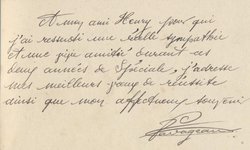 Et mon ami Henry pour qui
j'ai ressenti une réelle sympathie
et une amitié durant ces
deux années de Spéciale, j'adresse
mes meilleurs vœux de réussite
ainsi que mon affectueux souvenir